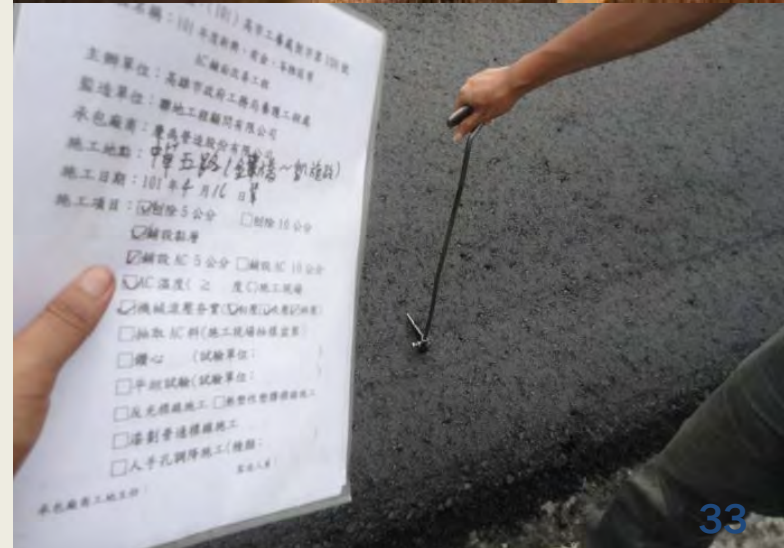 (101)高市工養處契字第108號
名稱：101年度新興、前金、苓雅區等
AC鋪面改善工程
主辦單位：高雄市政府工務局養護工程處
監造單位：聯地工程顧問有限公司
承包廠商：營造股份有限公司
施工地點：中華五路(橋~凱旋路)
施工日期：101年4月16日
施工項目：☑刨除5公分 □刨除10公分
☑鋪設黏層
☑鋪設AC 5公分 □鋪設AC 10公分
☑AC溫度(≥ 度C)施工現場
☑機械滾壓夯實(☑初壓☑壓☑壓)
□抽取AC料(施工現場抽樣
□鑽心 (試驗單位： )
□平坦試驗(試驗單位： )
□反光標誌施工 □熱塑性標線施工
□漆劃普通標線施工
□人手孔調降施工(種類： )
承包廠商工地主任：
33